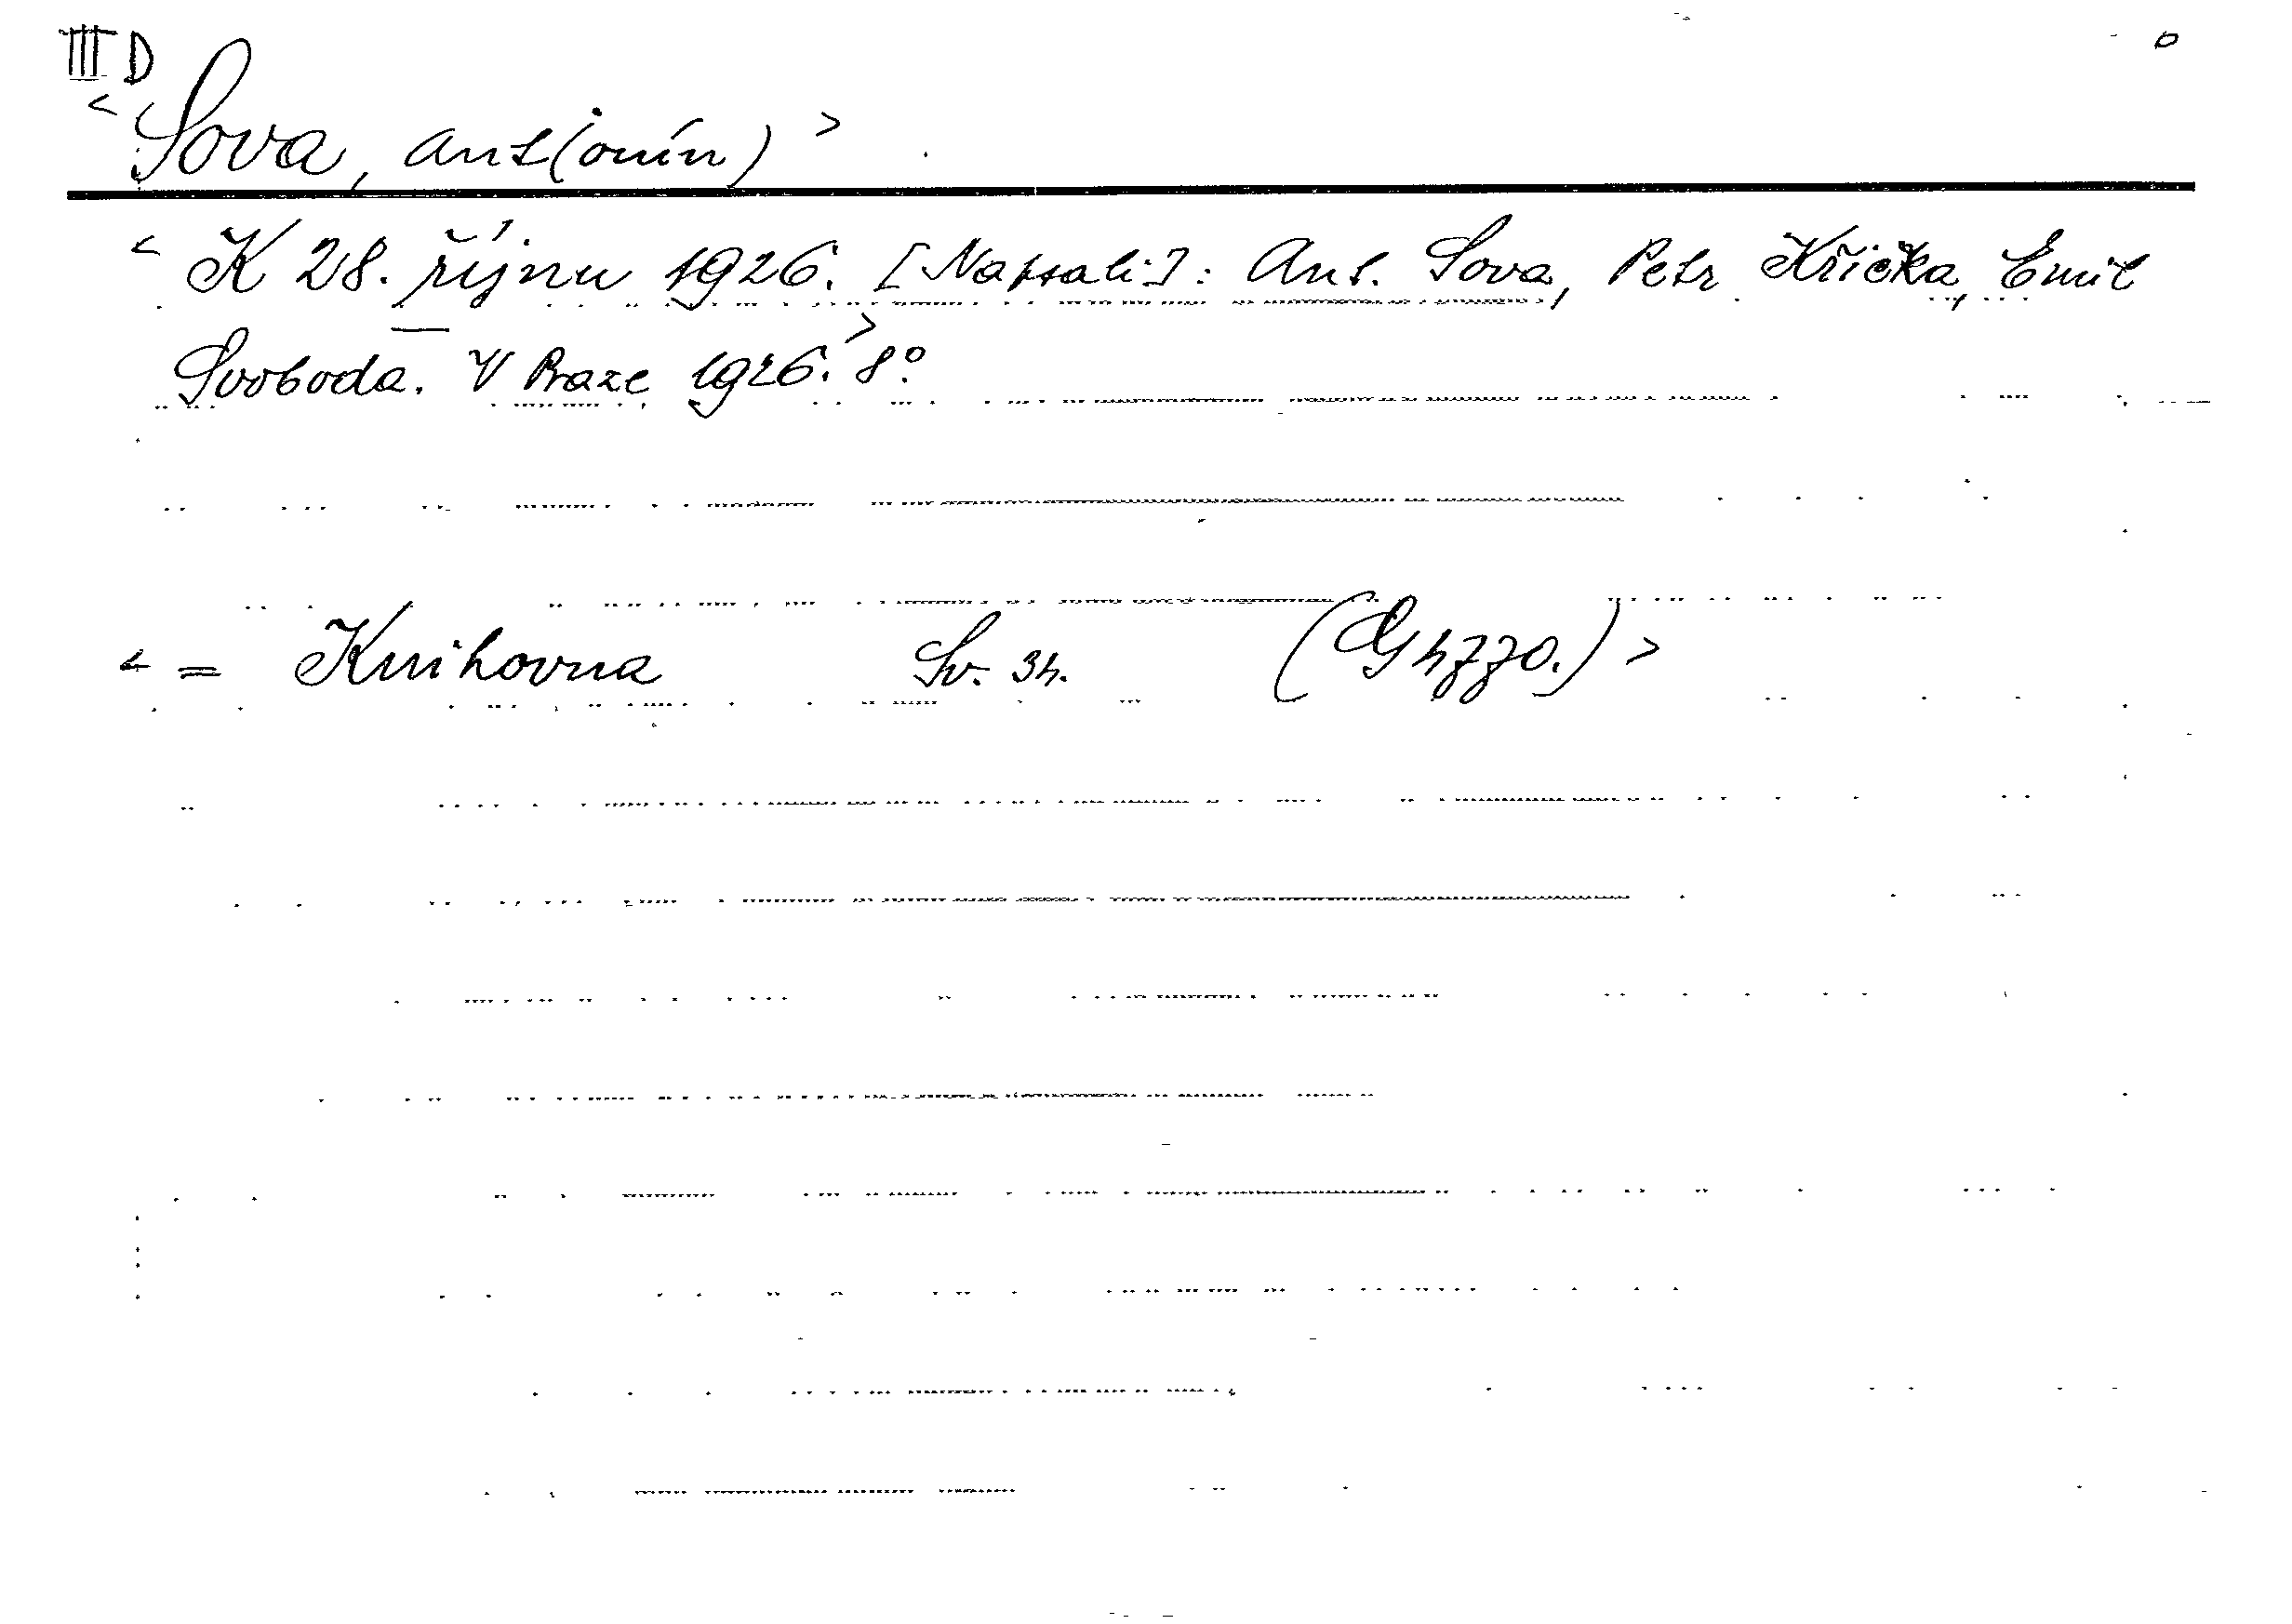 III D
< Sova, Ant(onín) >
< K 28. říjnu 1926. [Napsali]: Ant. Sova, Petr Křička, Emil
Svoboda. V Praze 1926. > 8°.
< = Knihovna Sv. 34. (G 4770.) >